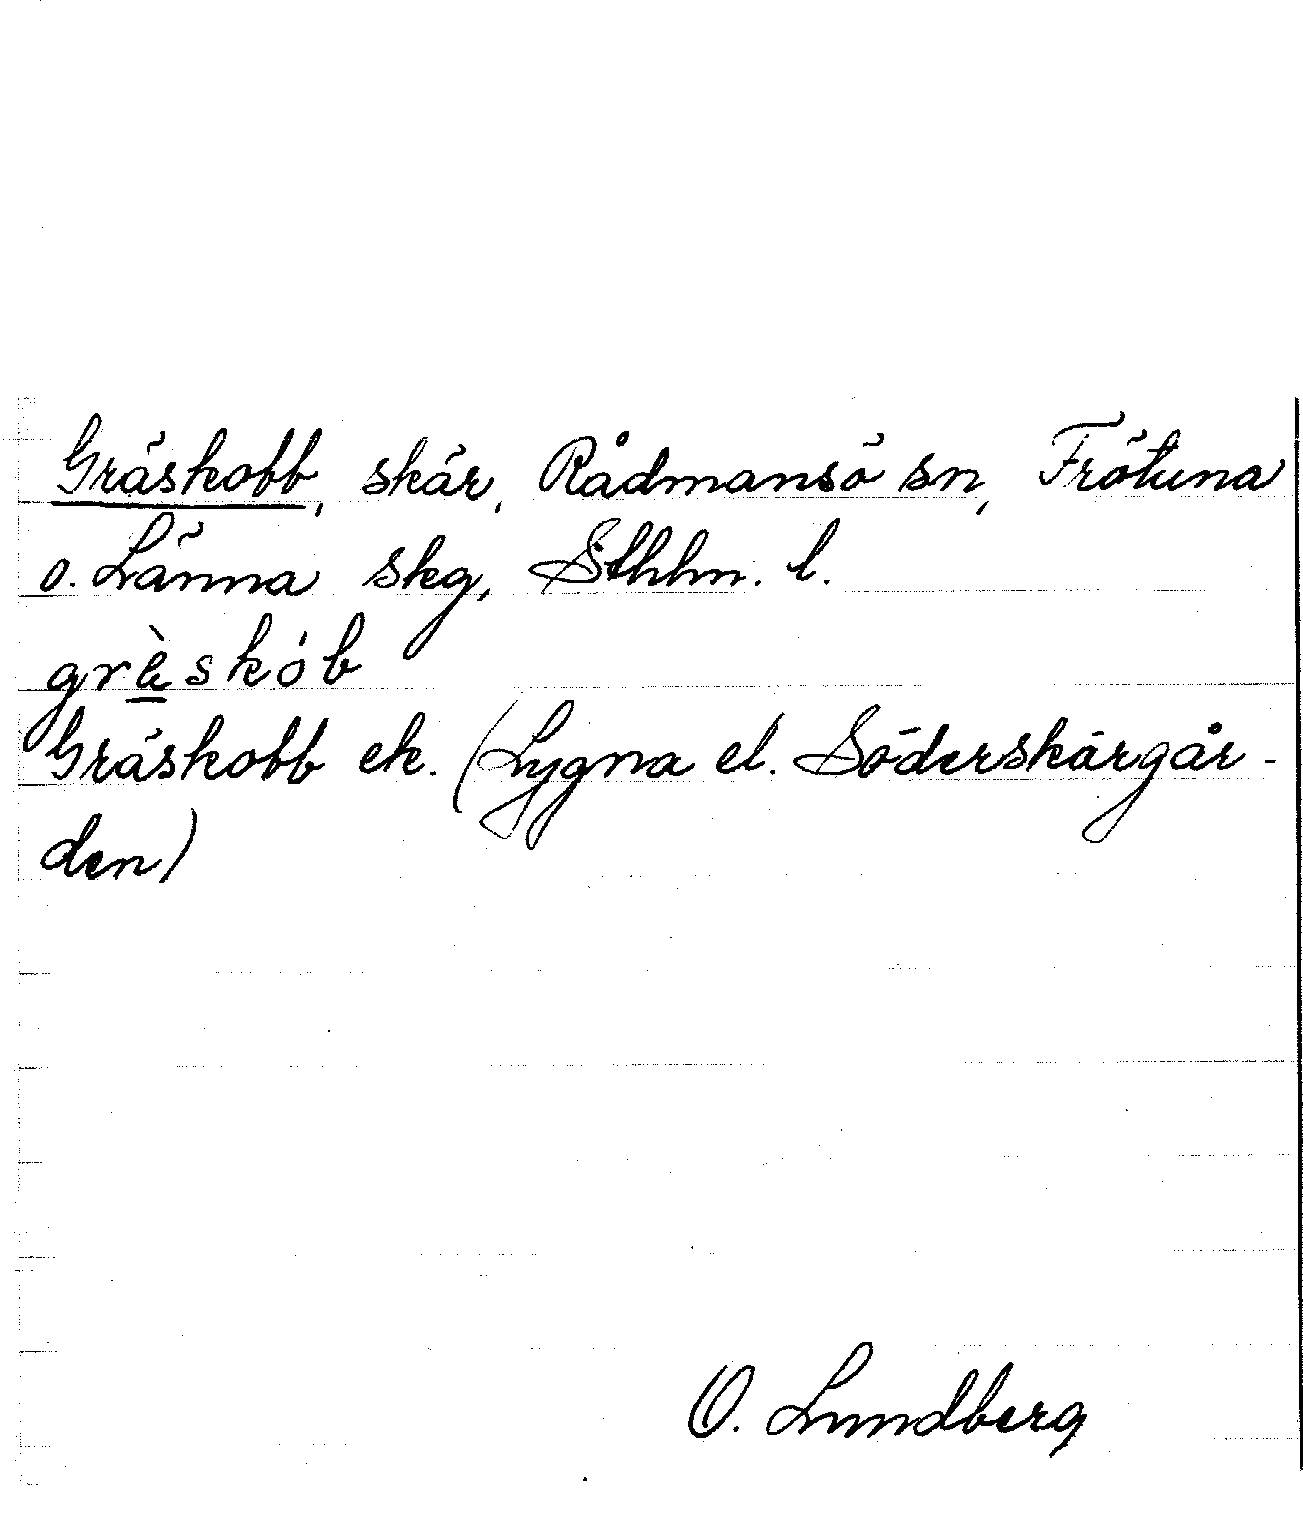 Gräskobb, skär, Rådmansö sn, Frötuna
o. Länna skg, Sthlm. l.
grèskób
Gräskobb ek. (Lygna el. Söderskärgår-
den)
O. Lundberg